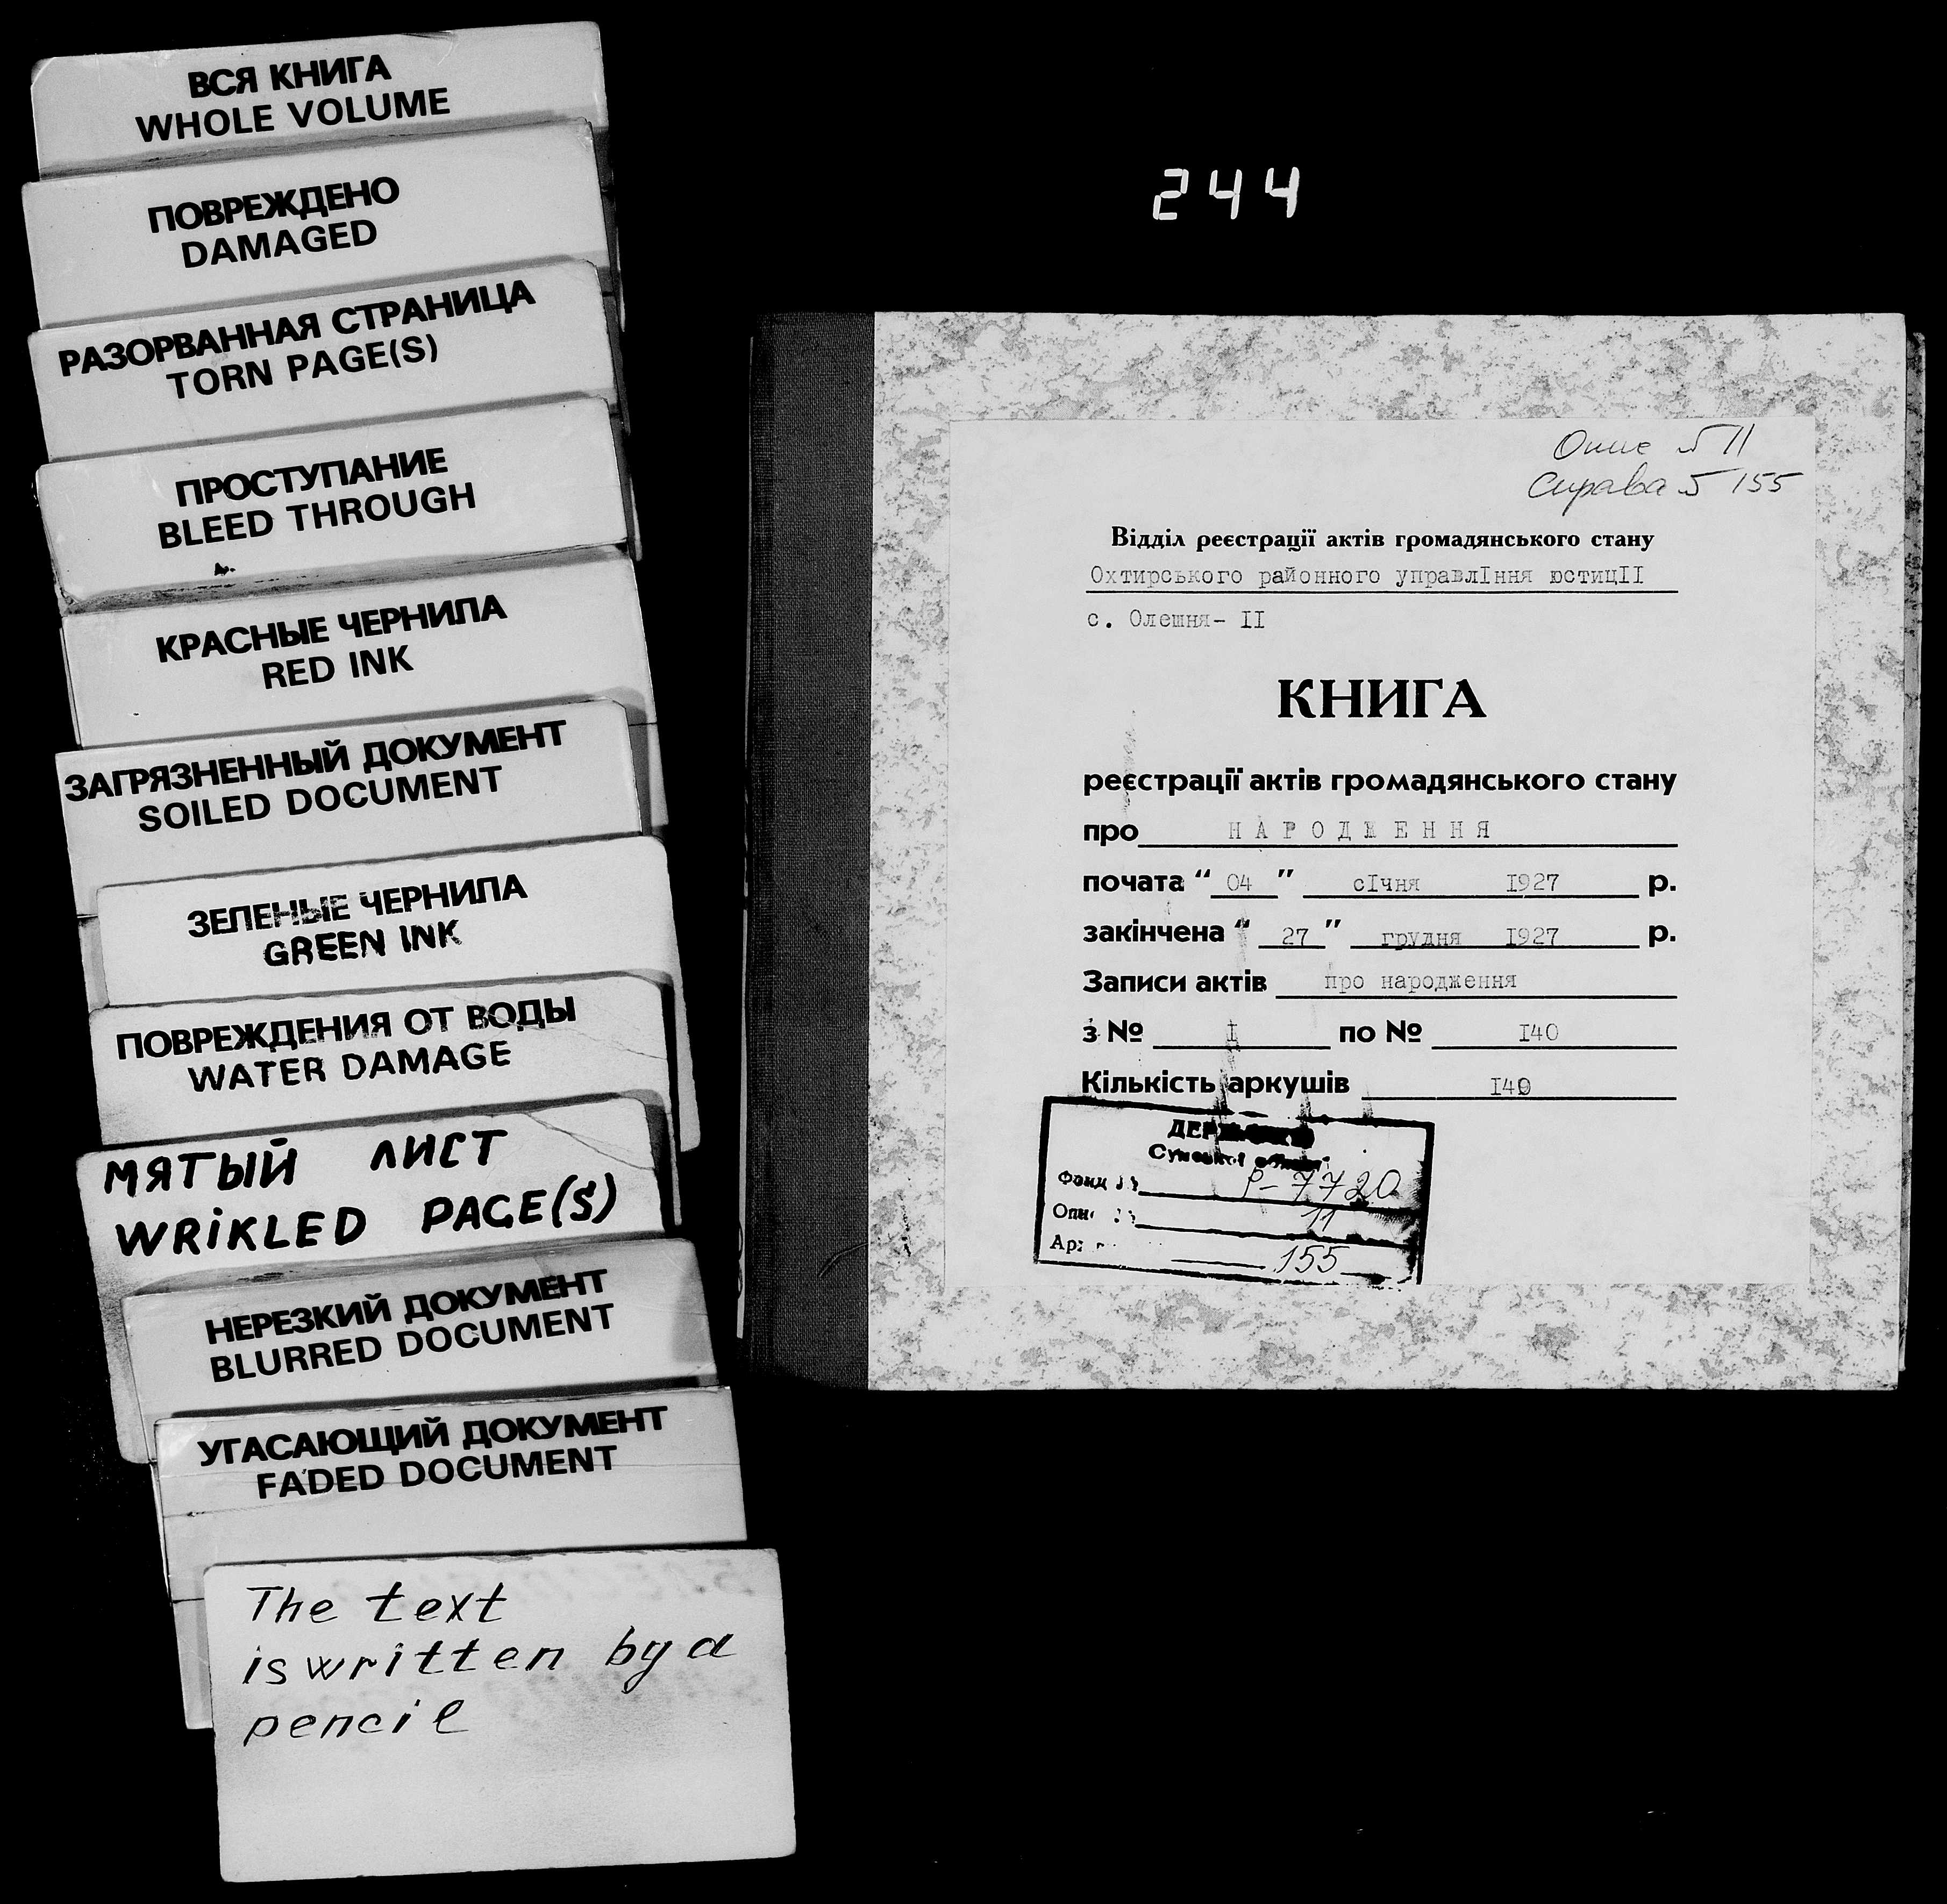 ВСЯ КНИГА
WHOLE VOLUME
ПОВРЕЖДЕНО
DAMAGED
РАЗОРВАННАЯ СТРАНИЦА
TORN PAGE(S)
ПРОСТУПАНИЕ
BLEED THROUGH
КРАСНЫЕ ЧЕРНИЛА
RED INK
ЗАГРЯЗНЕННЫЙ ДОКУМЕНТ
SOILED DOCUMENT
ЗЕЛЕНЫЕ ЧЕРНИЛА
GREEN INK
ПОВРЕЖДЕНИЯ ОТ ВОДЫ
WATER DAMAGE
МЯТЫЙ ЛИСТ
WRIKLED PAGE(S)
НЕРЕЗКИЙ ДОКУМЕНТ
BLURRED DOCUMENT
УГАСАЮЩИЙ ДОКУМЕНТ
FADED DOCUMENT
The text
is written by a
pencil
244
Опис № 11
Справа № 155
Відділ реєстрації актів громадянського стану
Охтирського районного управлIння юстицII
с. Олешня- II
КНИГА
реєстрації актів громадянського стану
про НАРОДЖЕННЯ
почата “ 04 ” сIчня I927 р.
закінчена “ 27 ” грудня I927 р.
Записи актів про народження
з № I по № I40
Кількість аркушів I40
Фонд Р-7720
11
155